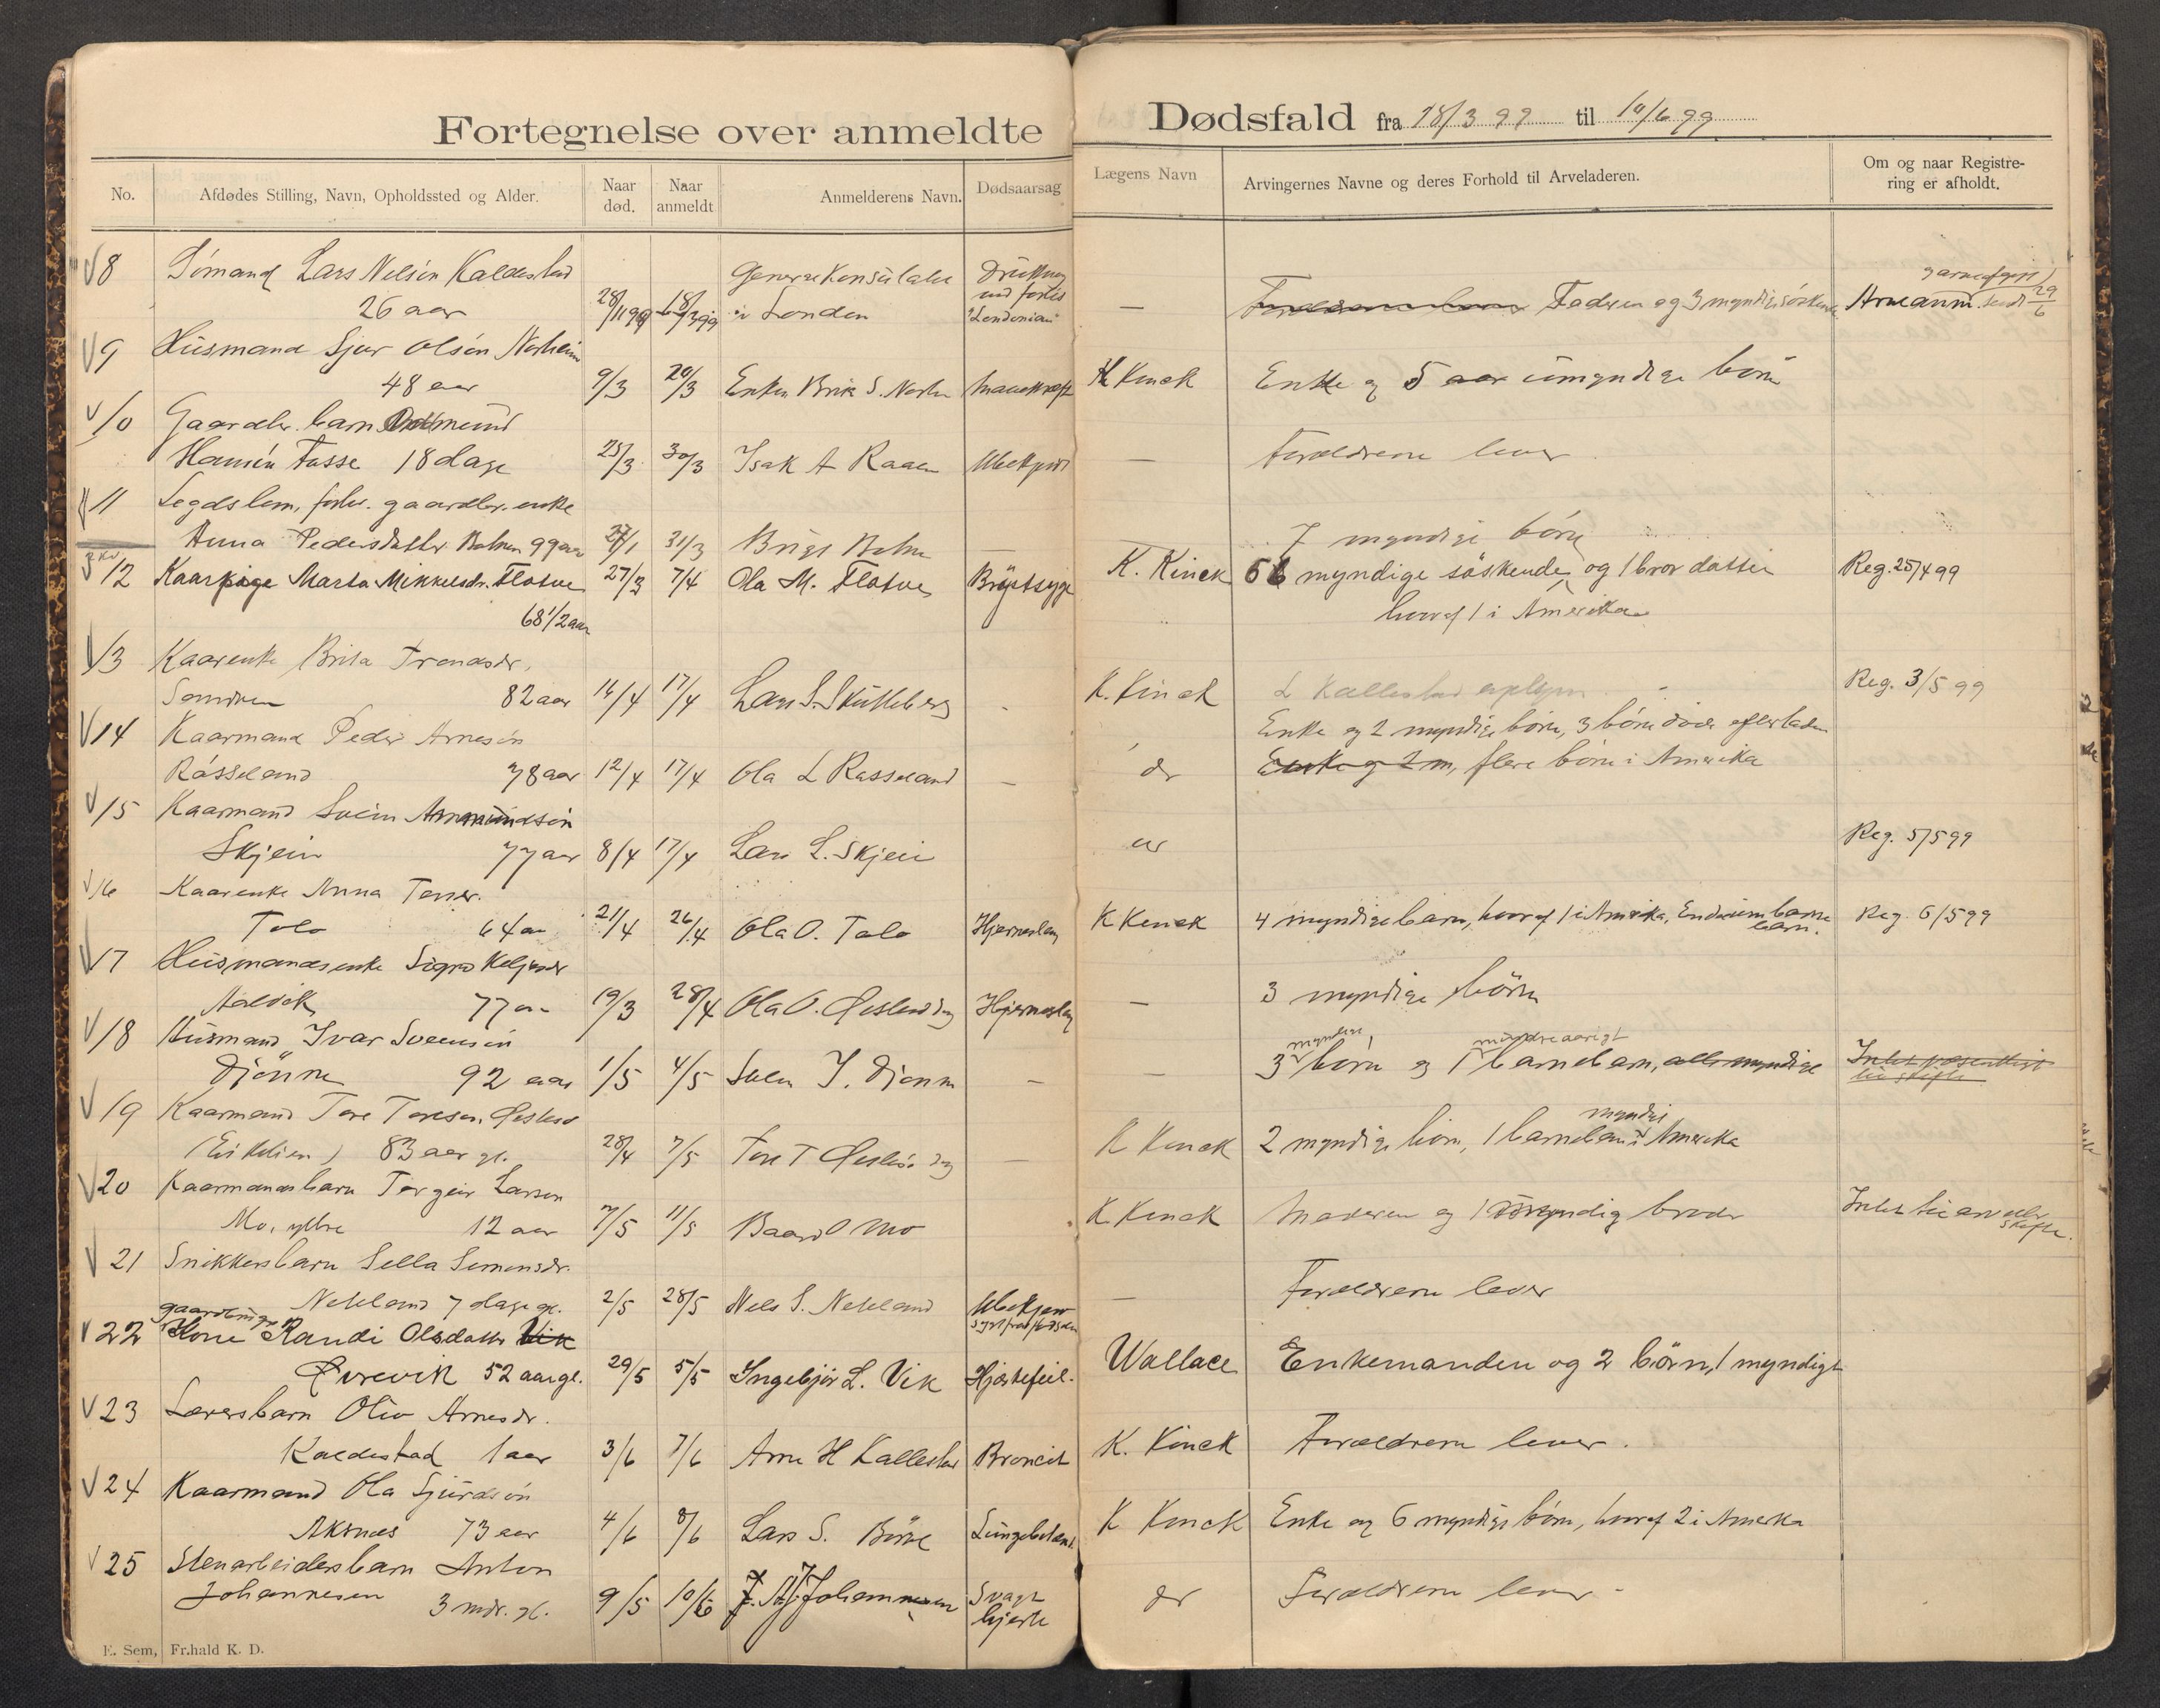 Fortegnelse over anmeldte Dødsfald fra 18/3 99 til 10/6 99
No. Afdødes Stilling, Navn, Opholdssted og Alder. Naar død. Naar anmeldt Anmelderens Navn. Dødsaarsag Lægens Navn Arvingernes Navne og deres Forhold til Arveladeren. Om og naar Registrering er afholdt.
8 Sömand Lars Nelsön Kaldestad Generalkonsulatet
26 aar 28/1 99 18/3 99 i London "Londonian" — Faderen og 3 myndige söskende
9 Husmand Sjur Olsön Norheim
48 aar 9/3 20/3 Enken Brita S. Norh. K Kinck Enke og 5 umyndige börn
10 Gaardbr. barn
Hansön Fosse 18 dage 25/3 30/3 Isak A Raaen — Forældrene lever
11 Legdslem, forhv. gaardbr. enke
Anna Pedersdatter 99 aar 27/1 31/3 — 7 myndige börn
12 Kaarpige Marta Mikkelsdr. Flotve 27/3 7/4 Ola M. Flotve Brystsyge K. Kinck 6 myndige söskende og 1 brordatter Reg. 25/4 99
68 1/2 aar hvoraf 1 i Amerika
13 Kaarenke Brita Trondsdr.
82 aar 14/4 17/4 Lars S. Skutleberg K. Kinck L Kallestad Reg. 3/5 99
14 Kaarmand Peder Arnesön Enke og 2 myndige börn, 3 börn döde
Rösseland 78 aar 12/4 17/4 Ola L Rösseland — do Enke og 2 m, flere börn i Amerika
15 Kaarmand Svein Ammundsön
Skjeie 77 aar 8/4 17/4 Lars L. Skjeie do Reg. 5/5 99
16 Kaarenke Anna Torsdr.
Tolo 64 aar 21/4 26/4 Ola O. Tolo Hjerneslag K Kinck 4 myndige barn, hvoraf 1 i Amerika, barnebarn. Reg. 6/5 99
17 Husmandsenke Sigrid
Aalvik 77 aar 19/3 28/4 Ola O. Hjerneslag — 3 myndige börn
18 Husmand Ivar Svensön myndige mindreaarigt
Djönne 92 aar 1/5 4/5 Sven I. Djönne — — 3 börn og 1 barnebarn, alle myndige Intet væsentligt til skifte
19 Kaarmand Tore Toresen myndig
83 aar gl. 28/4 7/5 Tore T — K Kinck 2 myndige börn, 1 barnebarn i Amerika
20 Kaarmandsbarn Torgeir Larsen
Mo, ytre 12 aar 7/5 11/5 Baard O Mo K Kinck Moderen og 1 myndig broder Intet til arv eller skifte.
21 Snikkersbarn Sella Simonsdr.
Neteland 7 dage gl. 2/5 28/5 Nels S. Neteland — Forældrene lever
22 Kone Randi Olsdatter Vik
Övrevik 52 aar gl. 29/5 5/5 Ingebjör L. Vik Hjertefeil. Wallace Enkemanden og 2 börn, 1 myndigt
23 Lærersbarn Oliv Arnesdr.
Kaldestad 1 aar 3/6 7/6 Arne H Kallestad Broncit K. Kinck Forældrene lever.
24 Kaarmand Ola Sjurdsön
Aksnes 73 aar 4/6 8/6 Lars S. Börve Lungebetænd. K Kinck Enke og 6 myndige börn, hvoraf 2 i Amerika
25 Stenarbeidersbarn Anton
Johannesen 3 mdr. gl. 9/5 10/6 Johannesen Svagt hjerte do Forældrene lever
E. Sem, Fr.hald K. D.